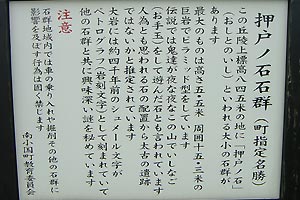 押戸ノ石石群（町指定名勝）
この丘陵上標高八四五米の地に「押戸ノ石」
（おしとのいし）といわれる大小の石群が
あります
最大のものは高さ五・五米　周囲十五・三米の
巨岩でピラミッド型をしています
伝説では鬼達が夜な夜なこの山でいしなご
（お手玉）をして遊んだ石とも言われていますが
人為とも思われる石の配置から太古の遺跡
ではないかと推定されています
大岩には約四千年前のシュメール文字が
ペトログラフ（岩刻文字）として刻まれていて
他の石群と共に興味深い謎を秘めています
注意
石群地域内では車の乗り入れや掘削その他の石群に
影響を及ぼす行為は固く禁じます
南小国町教育委員会